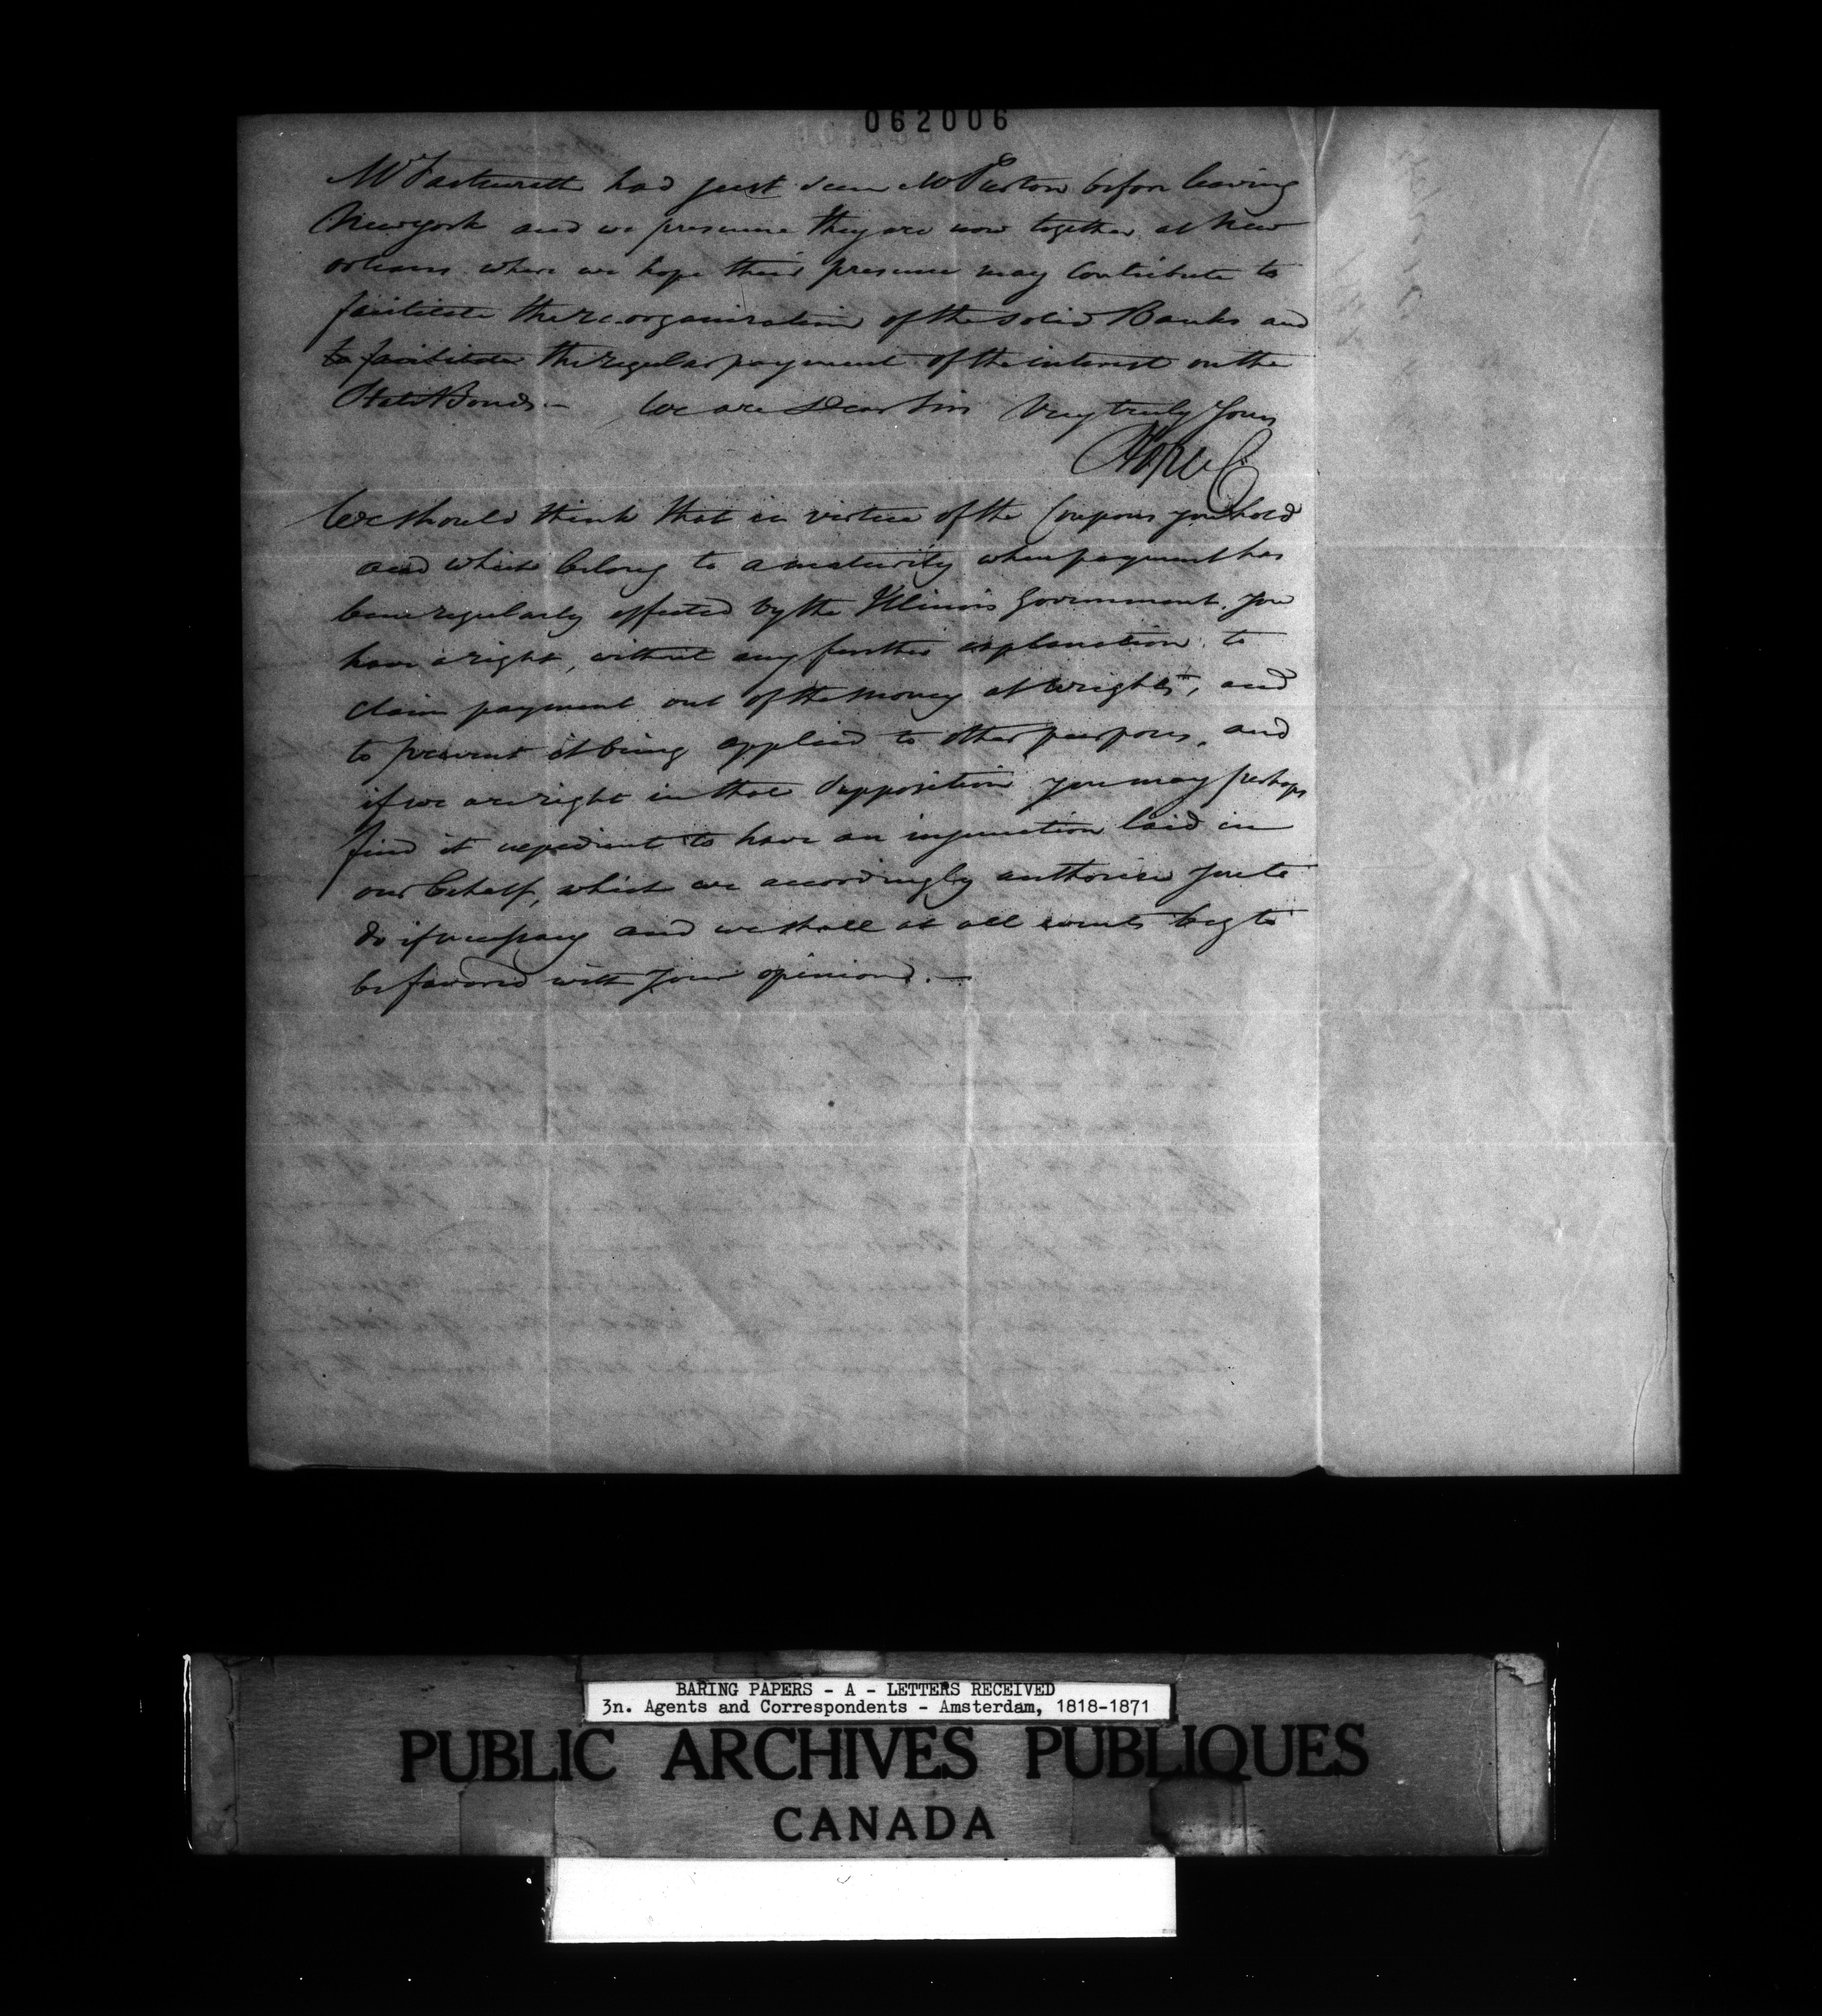 062006
had just seen before leaving
Newyork and we presume they are now together at New
orleans where we hope their presence may contribute to
facilitate the re-organisation of the solid Banks and
to facilitate the regular payment of the interest on the
State Bonds.— We are Dear Sirs Very truly Yours
Hope & C
We should think that in virtue of the Coupons you hold
and which belong to a maturity when payment has
been regularly effected by the Illinois Government, you
have a right, without any further explanation to
claim payment out of the money at Wrights, and
to prevent it being applied to other purposes, and
if we are right in that supposition you may perhaps
find it expedient to have an injunction laid in
our behalf, which we accordingly authorise you to
do if necessary and we shall at all events beg to
be favored with your opinion.—
BARING PAPERS - A - LETTERS RECEIVED
3n. Agents and Correspondents - Amsterdam, 1818-1871
PUBLIC ARCHIVES PUBLIQUES
CANADA